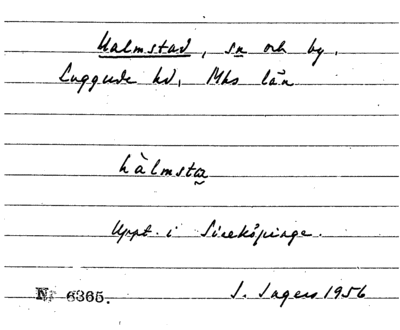 Halmstad, sn och by.
Luggude hd, Mhs län
hàlmsta
Uppt. i Sireköpinge.
Nr 6365. S. Ingers 1956